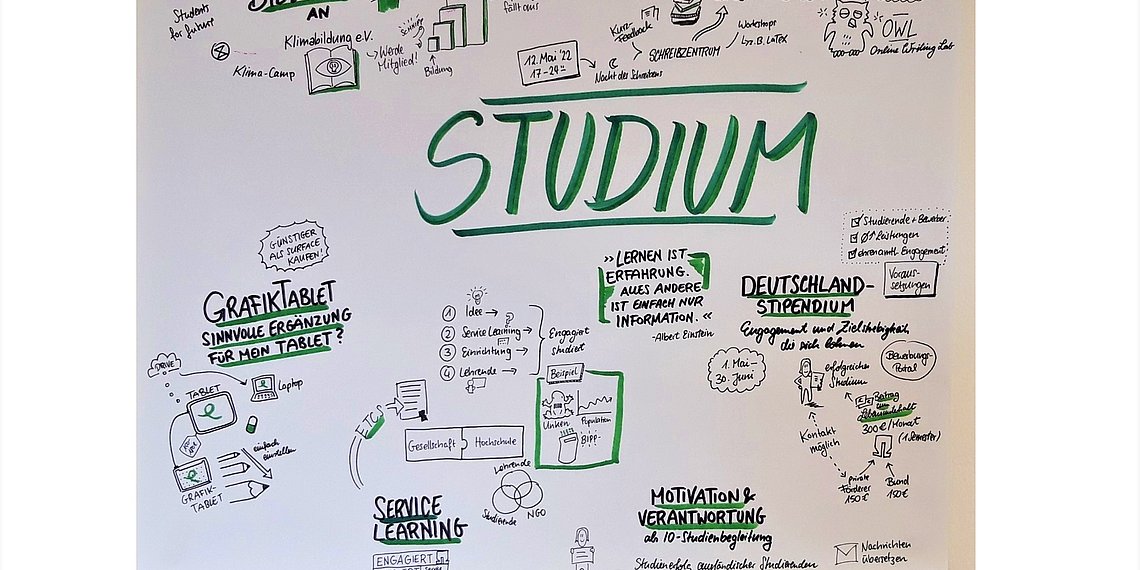 Students
for future
AN
Klimabildung e.V.
Klima-Camp
Werde
Mitglied!
Bildung
fällt aus
12. Mai '22
17-24
Nacht des Schreibens
Kurz-
Feedback
SCHREIBZENTRUM
Workshops
z.B. LaTeX
OWL
Online Writing Lab
STUDIUM
GÜNSTIGER
ALS SURFACE
KAUFEN!
GRAFIKTABLET
SINNVOLLE ERGÄNZUNG
FÜR MEIN TABLET?
DRIVE
TABLET
Laptop
einfach
einstellen
GRAFIK-
TABLET
1 Idee
2 Service Learning
3 Einrichtung
4 Lehrende
Engagiert
studiert
Beispiel
Unken
Population
BIPP-
ETCS
Gesellschaft
Hochschule
Lehrende
Studierende
NGO
SERVICE
LEARNING
ENGAGIERT
»LERNEN IST
ERFAHRUNG.
ALLES ANDERE
IST EINFACH NUR
INFORMATION.«
-Albert Einstein
Studierende + Bewerber
Ø↑ Leistungen
ehrenamtl. Engagement
Voraus-
setzungen
DEUTSCHLAND-
STIPENDIUM
Engagement und Zielstrebigkeit,
die sich lohnen
1. Mai-
30. Juni
erfolgreiches
Studium
Bewerbungs-
Portal
Beitrag
zum
Lebensunterhalt
300€/Monat
(1 Semester)
Kontakt
möglich
private
Förderer
150€
Bund
150€
MOTIVATION &
VERANTWORTUNG
als IO-Studienbegleitung
Studienerfolg ausländischer Studierenden
Nachrichten
übersetzen